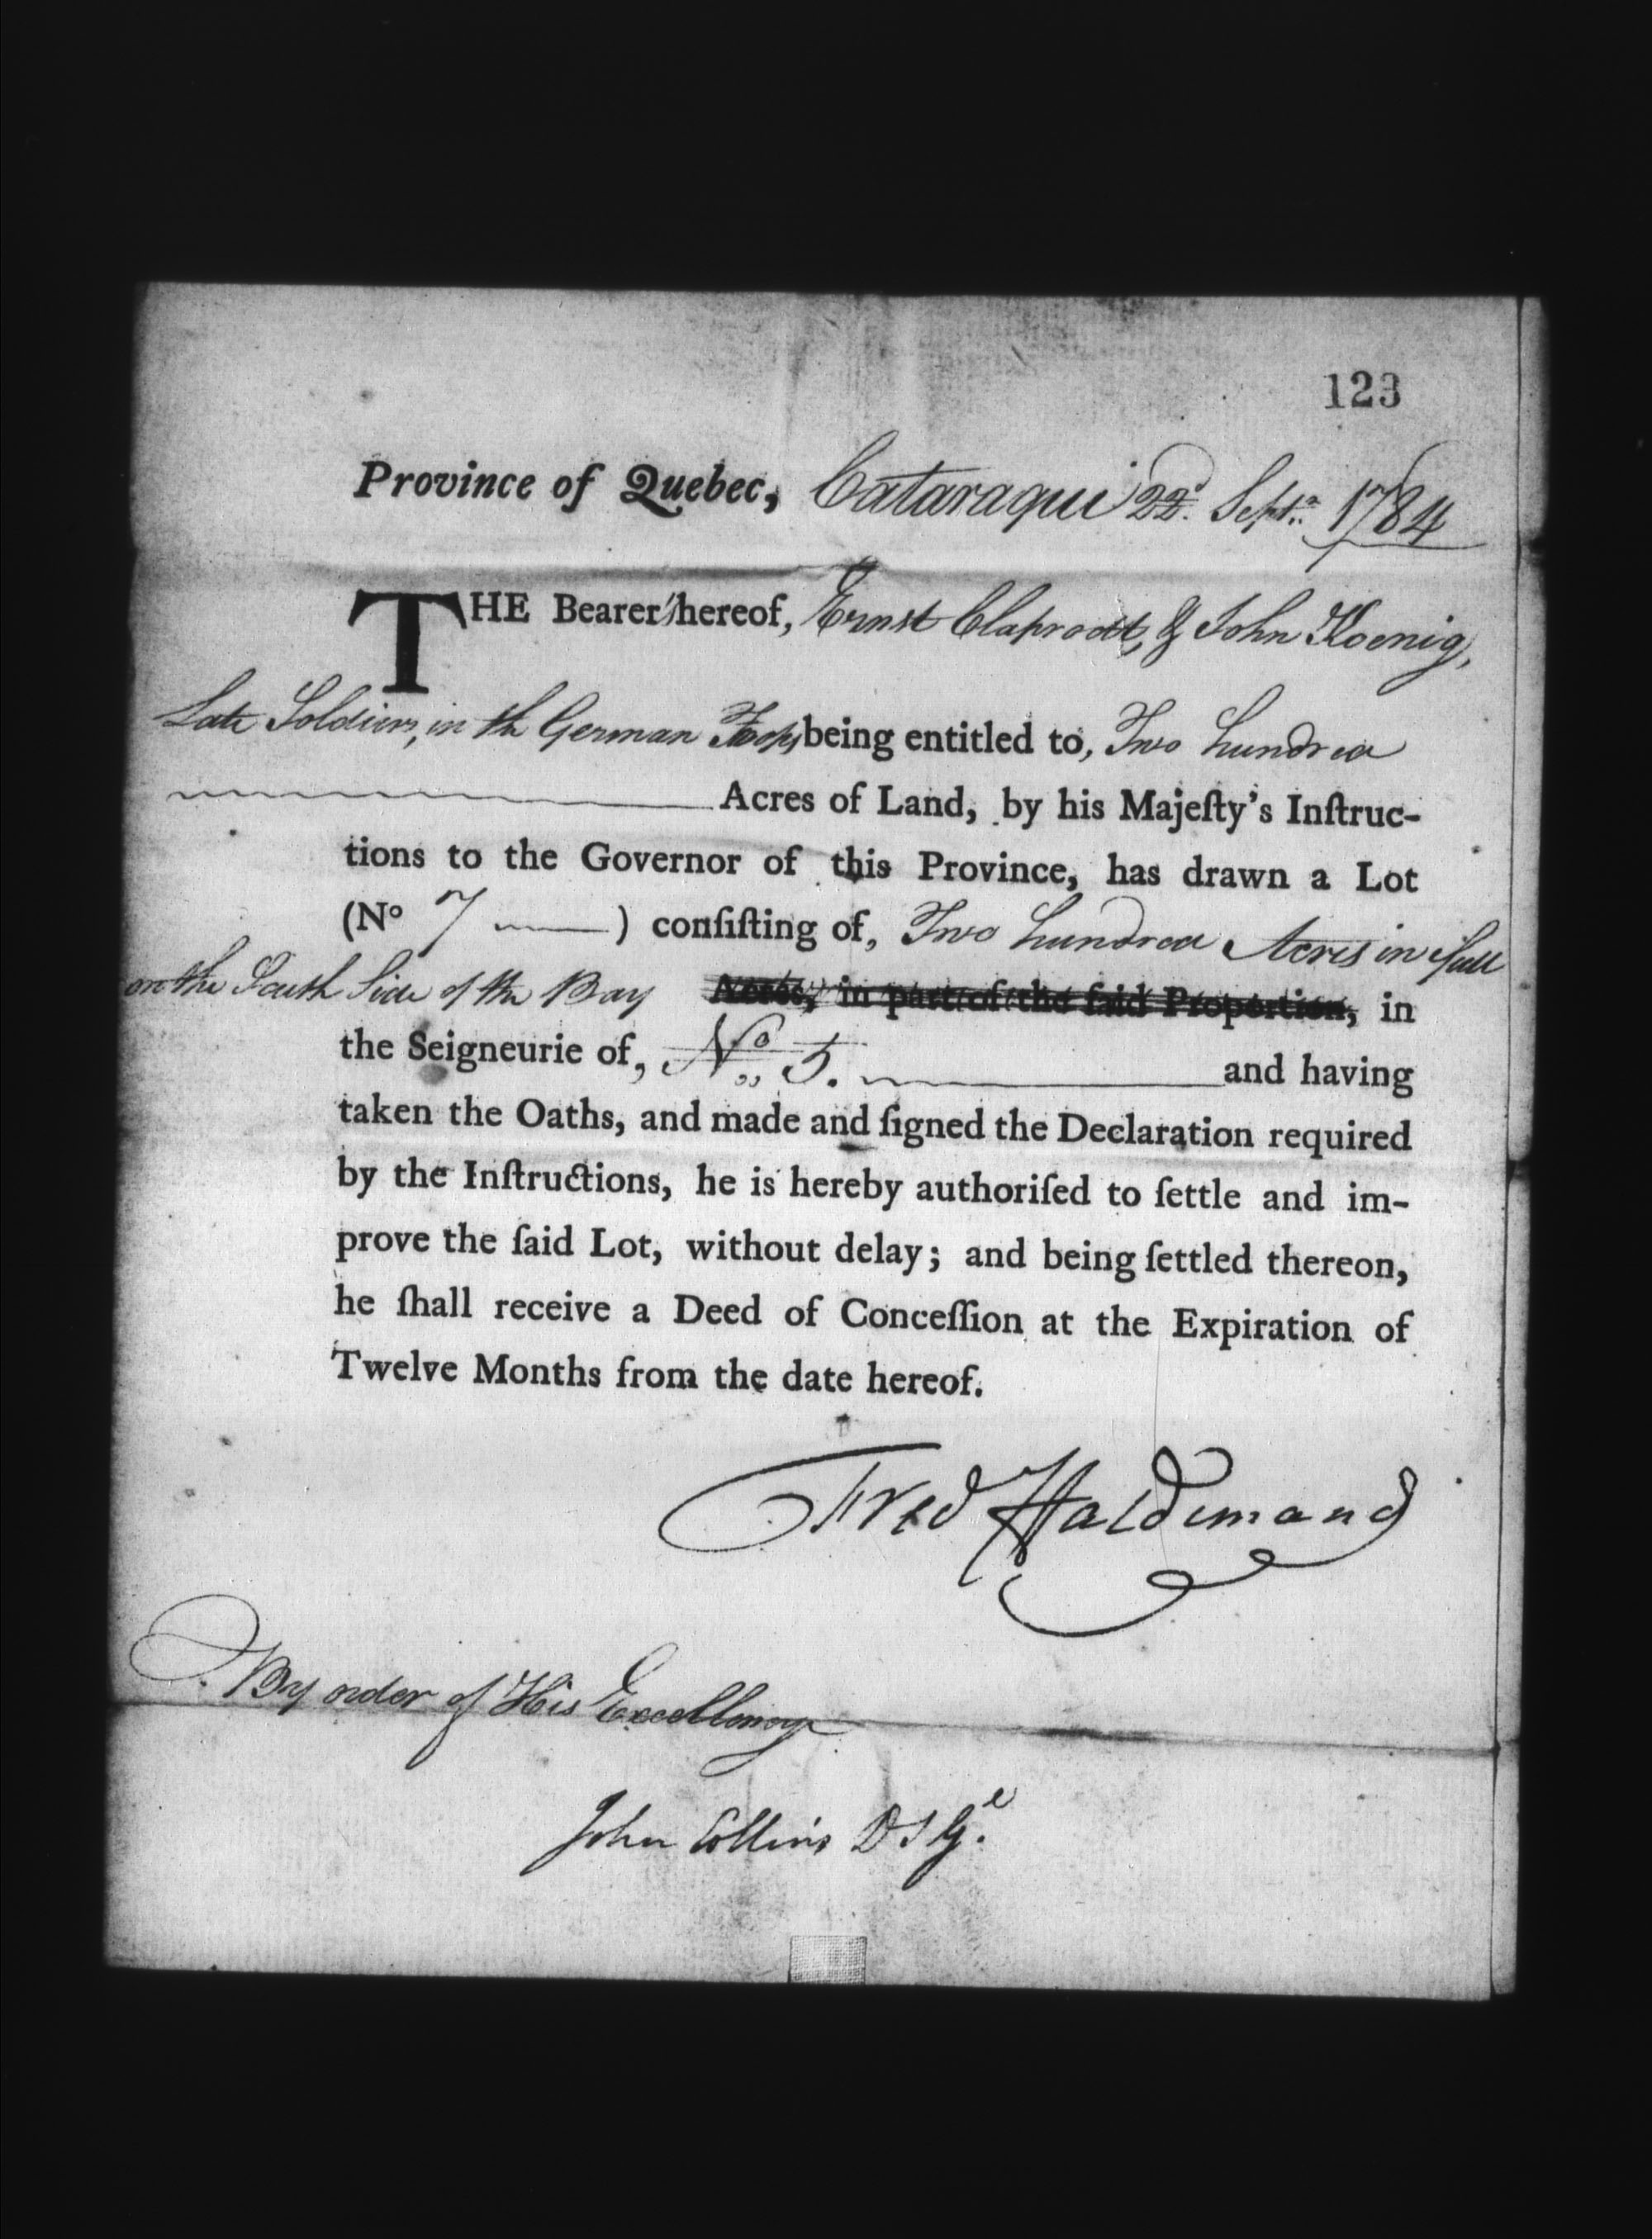 123
Province of Quebec, Cataraqui 22d. Septr. 1784
THE Bearers hereof, Ernst Claprodt, & John Koenig,
Late Soldiers, in the German Troops being entitled to, Two hundred
Acres of Land, by his Majeſty's Inſtruc-
tions to the Governor of this Province, has drawn a Lot
(No 7 ) conſiſting of, Two hundred Acres in full
on the South Side of the Bay Acres, in part of the ſaid Proportion, in
the Seigneurie of, No. 5. and having
taken the Oaths, and made and ſigned the Declaration required
by the Inſtructions, he is hereby authoriſed to ſettle and im-
prove the ſaid Lot, without delay; and being ſettled thereon,
he ſhall receive a Deed of Conceſſion at the Expiration of
Twelve Months from the date hereof.
Fred Haldimand
By order of His Excellency
John Collins D S Gl.